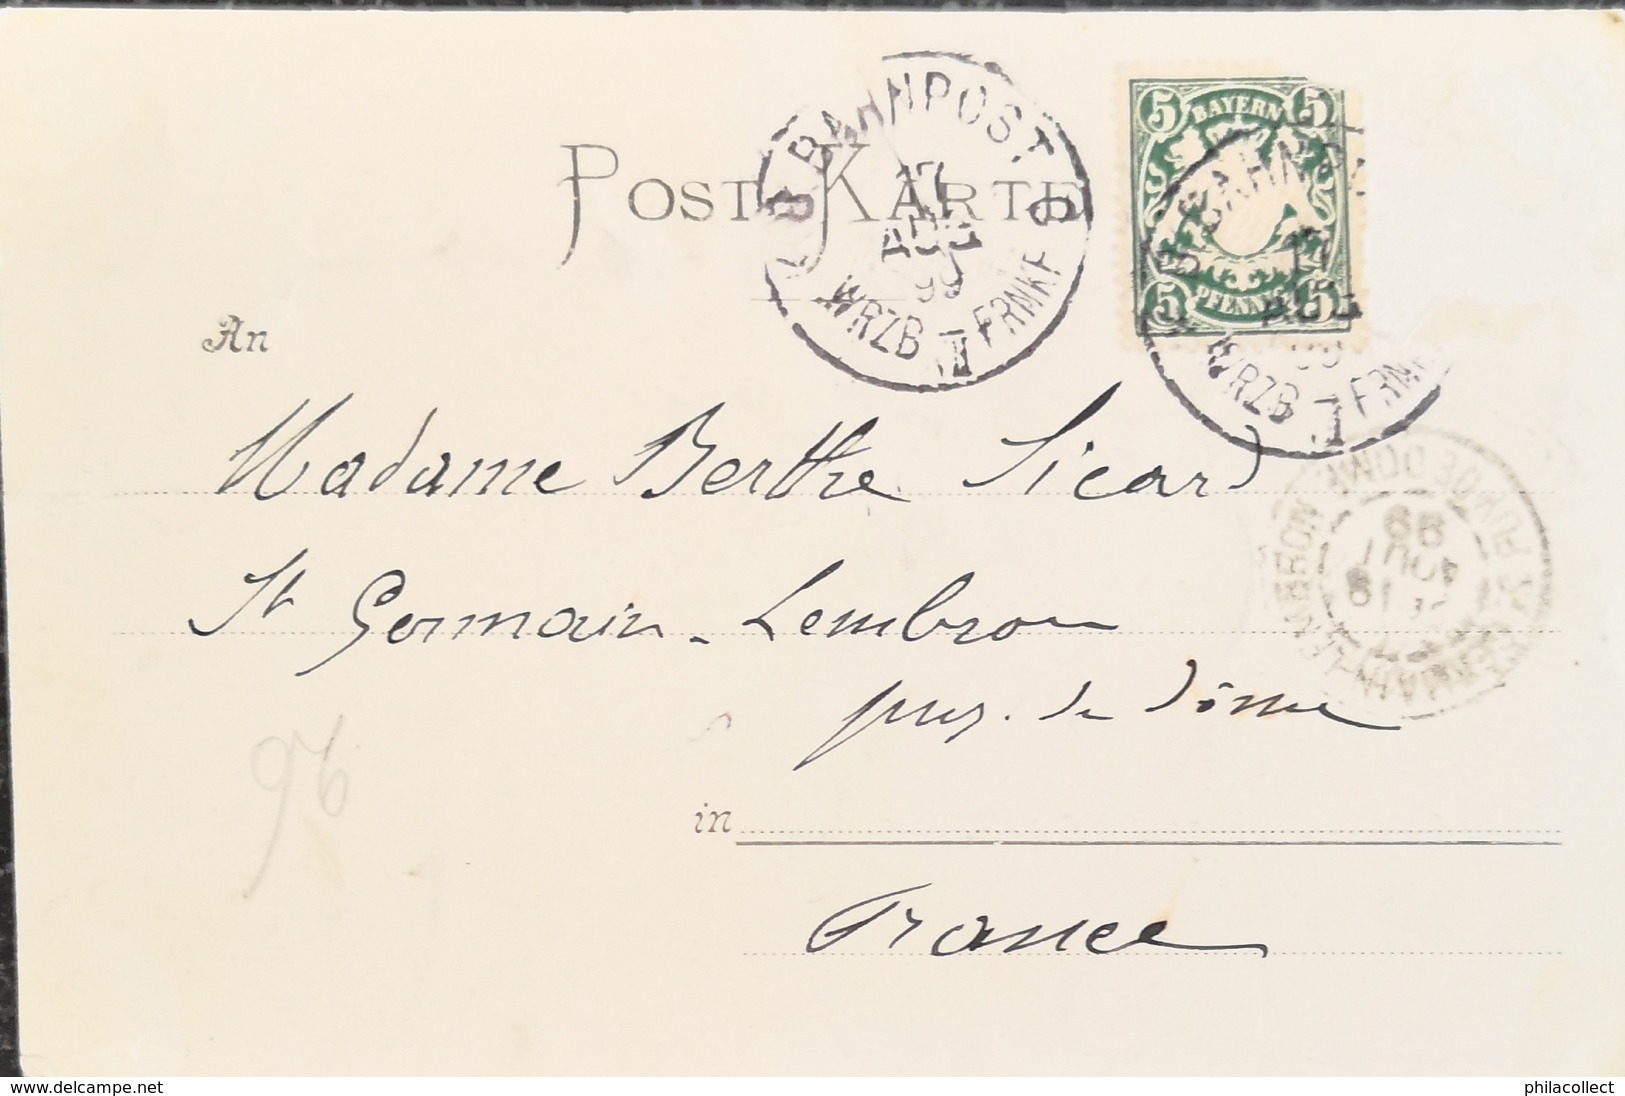 BAHNPOST
17
AUG
99
WRZB - FRNKF
II
BAYERN
5 5
5 5
PFENNIG
BAHNPO
17
AUG
WRZB - FRNKF
II
POSTKARTE
An
Madame Berthe Sicard
St Germain-Lembron
puy. de dôme
in
France
ST GERMAIN-LEMBRON PUY-DE-DOME
19
AOUT
99
96
www.delcampe.net
philacollect